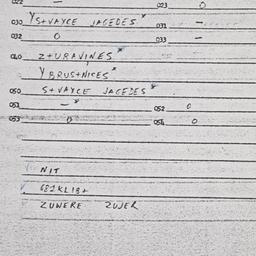 022 — 023 O
030 YS+VAYCE JAGEDES * 031 —
032 O 033 —
040 Z+URAVINES *
YBRUS+NICES *
050 S+VAYCE JAGEDES *
051 — * 052 O
053 O 054 O
NIT
681KL18+
ZUWERE ZUJER